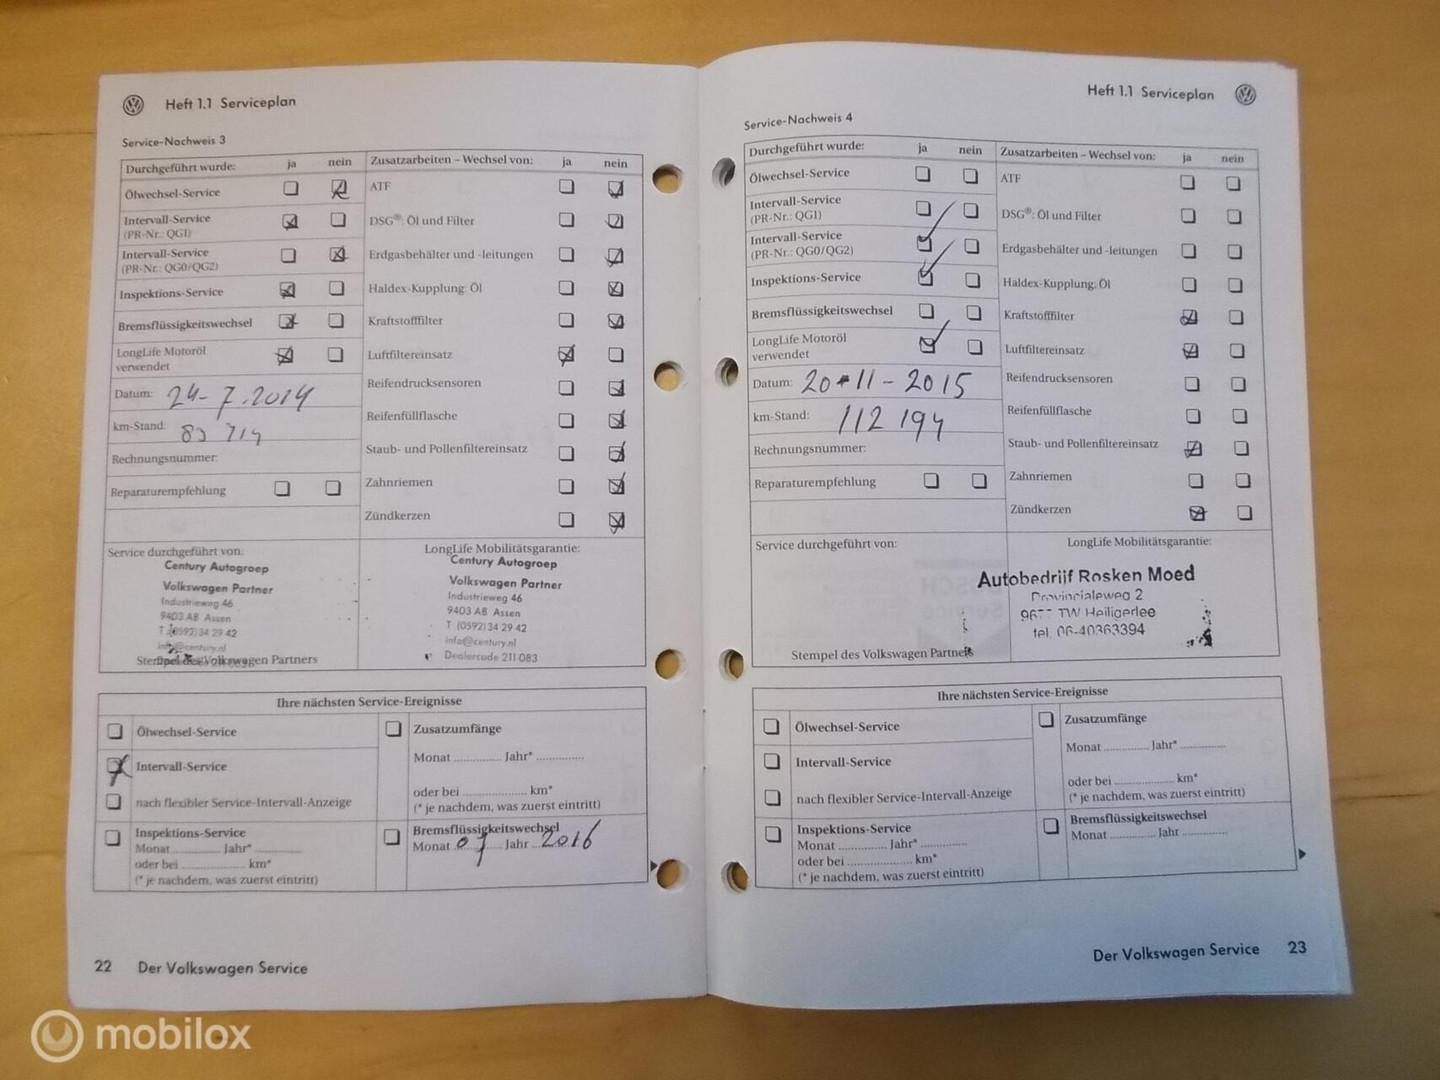 Heft 1.1 Serviceplan
Service-Nachweis 3
Durchgeführt wurde: ja nein
Ölwechsel-Service
Intervall-Service
(PR-Nr.: QG1)
Intervall-Service
(PR-Nr.: QG0/QG2)
Inspektions-Service
Bremsflüssigkeitswechsel
LongLife Motoröl
verwendet
Datum: 24-7.2014
km-Stand: 83 714
Rechnungsnummer:
Reparaturempfehlung
Zusatzarbeiten – Wechsel von: ja nein
ATF
DSG®: Öl und Filter
Erdgasbehälter und -leitungen
Haldex-Kupplung: Öl
Kraftstofffilter
Luftfiltereinsatz
Reifendrucksensoren
Reifenfüllflasche
Staub- und Pollenfiltereinsatz
Zahnriemen
Zündkerzen
Service durchgeführt von:
Century Autogroep
Volkswagen Partner
Industrieweg 46
9403 AB Assen
T (0592) 34 29 42
Stempel des Volkswagen Partners
LongLife Mobilitätsgarantie:
Century Autogroep
Volkswagen Partner
Industrieweg 46
9403 AB Assen
T (0592) 34 29 42
info@century.nl
Dealercode 211 083
Ihre nächsten Service-Ereignisse
Ölwechsel-Service
Intervall-Service
nach flexibler Service-Intervall-Anzeige
Inspektions-Service
Monat ............ Jahr* ............
oder bei .................. km*
(* je nachdem, was zuerst eintritt)
Zusatzumfänge
Monat ............ Jahr* ............
oder bei .................. km*
(* je nachdem, was zuerst eintritt)
Bremsflüssigkeitswechsel
Monat 07 Jahr 2016
22 Der Volkswagen Service
Heft 1.1 Serviceplan
Service-Nachweis 4
Durchgeführt wurde: ja nein
Ölwechsel-Service
Intervall-Service
(PR-Nr.: QG1)
Intervall-Service
(PR-Nr.: QG0/QG2)
Inspektions-Service
Bremsflüssigkeitswechsel
LongLife Motoröl
verwendet
Datum: 20-11-2015
km-Stand: 112 194
Rechnungsnummer:
Reparaturempfehlung
Zusatzarbeiten – Wechsel von: ja nein
ATF
DSG®: Öl und Filter
Erdgasbehälter und -leitungen
Haldex-Kupplung: Öl
Kraftstofffilter
Luftfiltereinsatz
Reifendrucksensoren
Reifenfüllflasche
Staub- und Pollenfiltereinsatz
Zahnriemen
Zündkerzen
Service durchgeführt von:
Stempel des Volkswagen Partners
LongLife Mobilitätsgarantie:
Autobedrijf Rosken Moed
Provincialeweg 2
TW Heiligerlee
tel. 06-40363394
Ihre nächsten Service-Ereignisse
Ölwechsel-Service
Intervall-Service
nach flexibler Service-Intervall-Anzeige
Inspektions-Service
Monat ............ Jahr* ............
oder bei .................. km*
(* je nachdem, was zuerst eintritt)
Zusatzumfänge
Monat ............ Jahr* ............
oder bei .................. km*
(* je nachdem, was zuerst eintritt)
Bremsflüssigkeitswechsel
Monat ............ Jahr ............
Der Volkswagen Service 23
mobilox